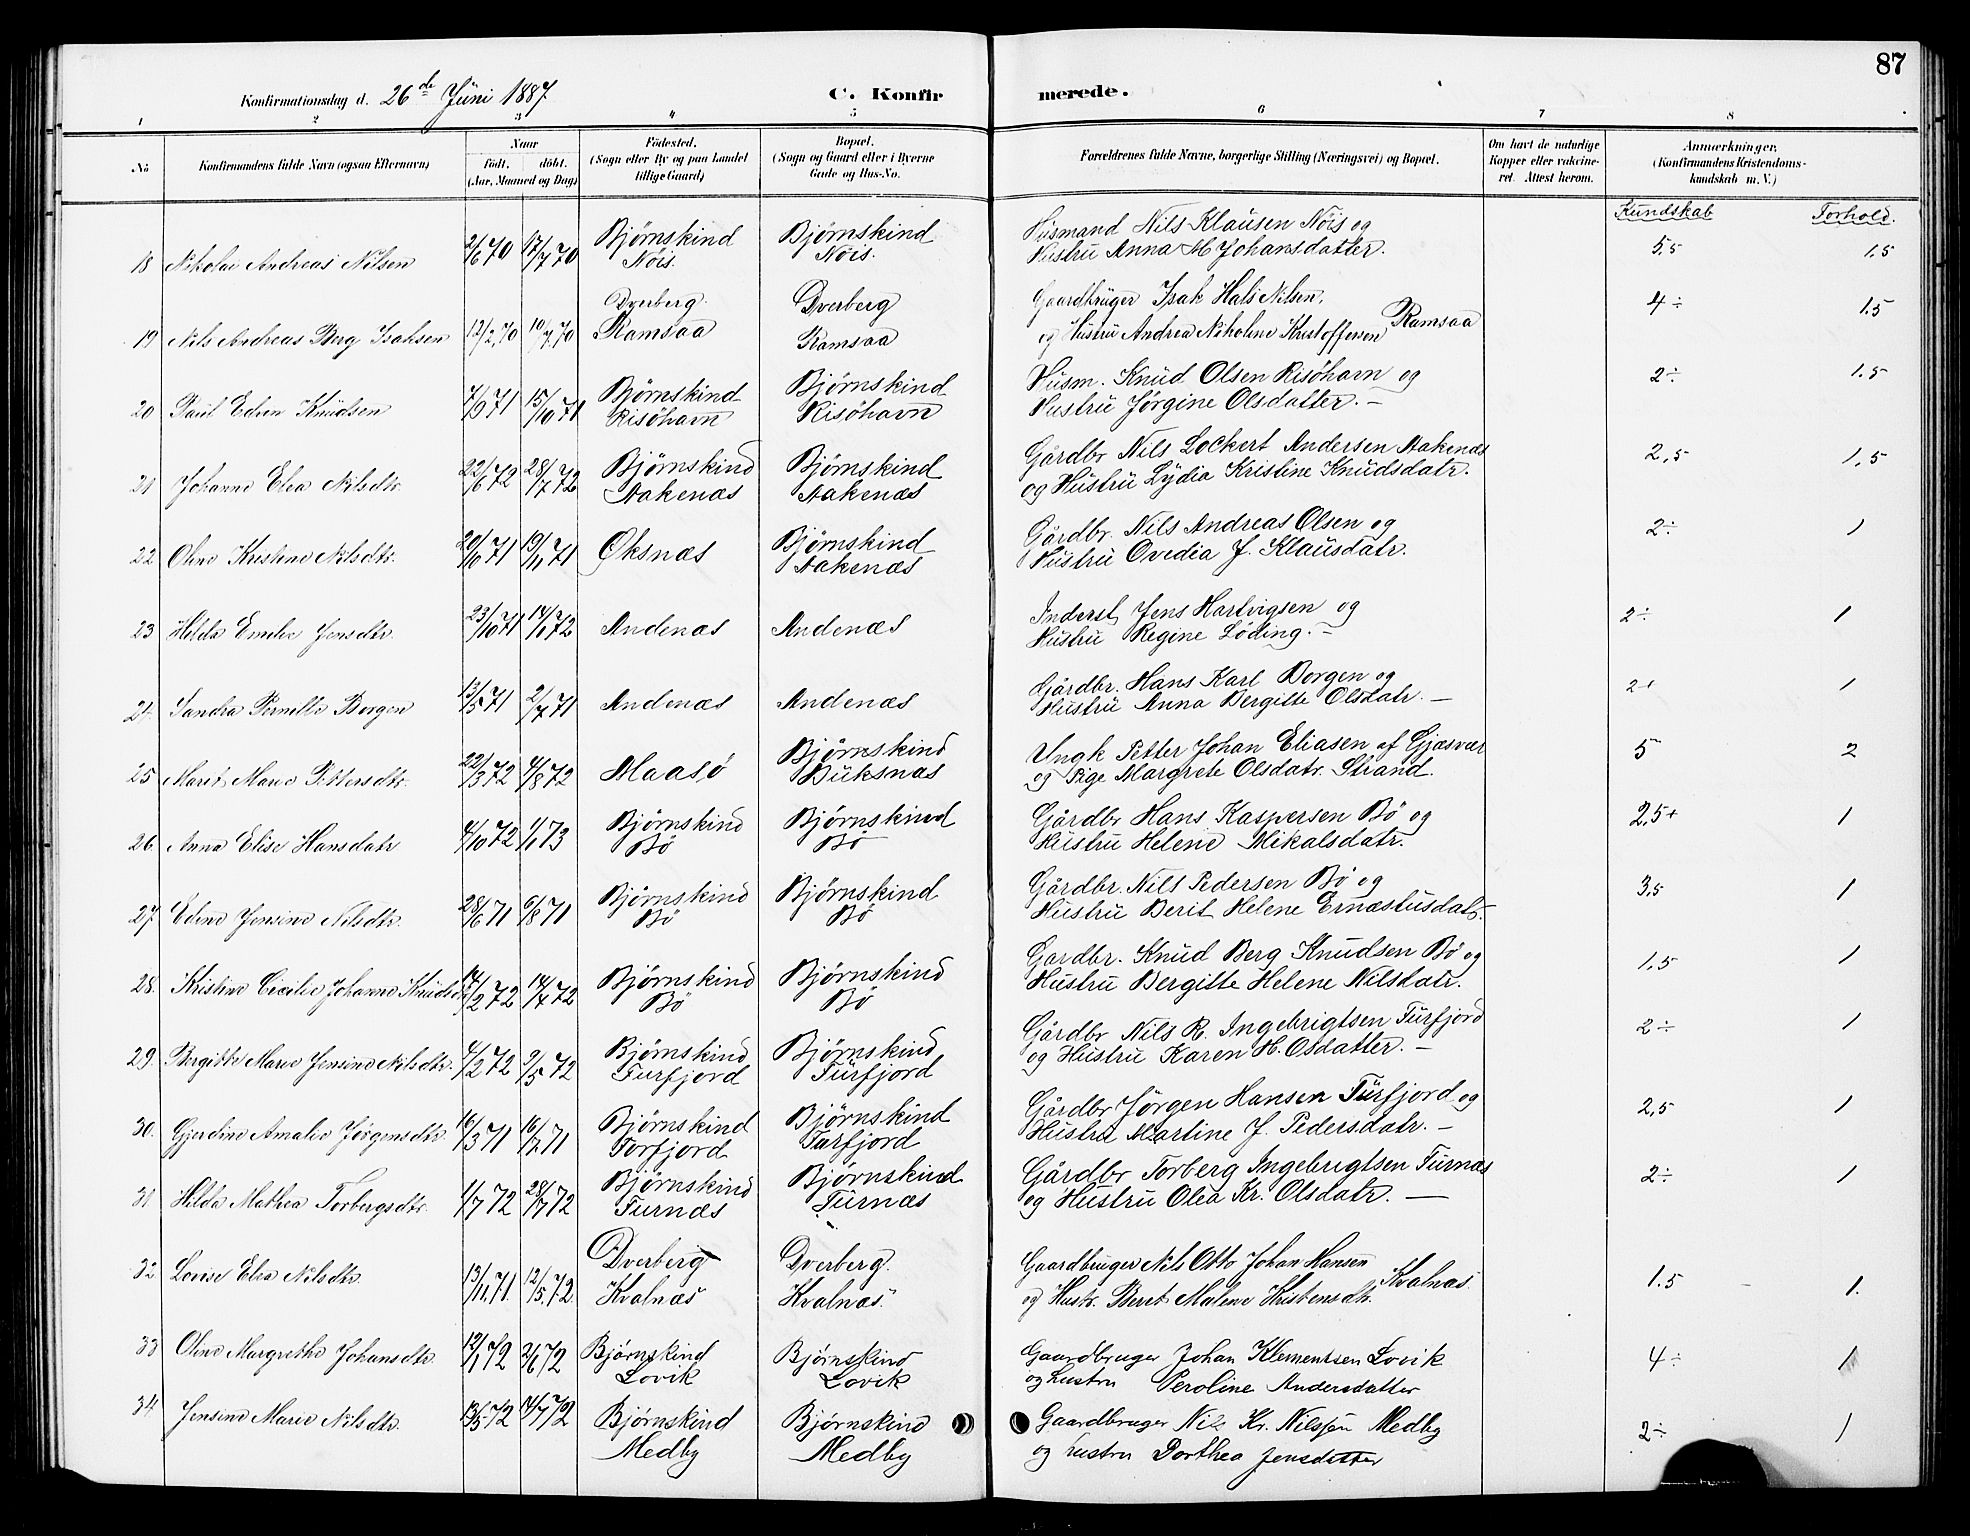 87
Konfirmationsdag d. 26de Juni 1887 C. Konfir merede.
1 2 3 4 5 6 7 8
No Konfirmandens fulde Navn (ogsaa Efternavn) Naar født. døbt. (Aar, Maaned og Dag) Födested. (Sogn eller By og paa Landet tillige Gaard) Bopæl. (Sogn og Gaard eller i Byerne Gade og Hus-No. Forældrenes fulde Navne, borgerlige Stilling (Næringsvei) og Bopæl. Om havt de naturlige Kopper eller vakcineret. Attest herom. Anmærkninger, (Konfirmandens Kristendomskundskab m. V.)
Kundskab Forhold.
18 Nikolai Andreas Nilsen 2/6 70 17/7 70 Bjørnskind Nöis. Bjørnskind Nöis. Husmand Nils Klausen Nöis og Hustru Anna M Johansdatter. 5,5 1.5
19 Nils Andreas Berg Isaksen 12/2, 70 10/7 70 Dverberg. Ramsaa Dverberg Ramsaa Gaardbruger Isak Hals Nilsen, og Hustru Andrea Nikoline Kristoffersen Ramsaa 4÷ 1.5
20 Paul Edvin Knudsen 7/9 71 15/10 71 Bjørnskind Risöhavn Bjørnskind Risöhavn Husm. Knud Olsen Risöhavn og Hustru Jørgine Olsdatter. — 2÷ 1.5
21 Johanne Elea Nilsdtr. 22/6 72 28/7 72 Bjørnskind Aakenæs Bjørnskind Aakenæs Gårdbr Nils Lockert Andersen Aakenæs og Hustru Lydia Kristine Knudsdatr. 2,5 1,5
22 Oline Kristine Nilsdtr. 20/10 71 19/11 71 Øksnæs Bjørnskind Aakenæs Gårdbr. Nils Andreas Olsen og Hustru Ovedia J. Klausdatr. 2÷ 1
23 Helda Emilie Jensdtr. 23/10 71 14/1 72 Andenæs Andenæs Inderst Jens Hartvigsen og Hustru Regine Løding. — 2÷ 1
24 Sandra Pernille Borgen 13/5 71 2/7 71 Andenæs Andenæs Gårdbr. Hans Karl Borgen og Hustru Anna Bergitte Olsdatr. — 2+ 1
25 Maret Marie Pettersdtr. 22/3 72 4/8 72 Maasö Bjørnskind Buksnæs Ungk Petter Johan Eliasen af Gjæsvær og Pige Margrete Olsdatr. Strand. 5 2
26 Anna Elise Hansdatr 4/10 72 1/1 73 Bjørnskind Bö Bjørnskind Bö Gårdbr Hans Kaspersen Bö og Hustru Helene Mikalsdatr. 2,5+ 1
27 Edine Jensine Nilsdtr. 28/6 71 6/8 71 Bjørnskind Bö Bjørnskind Bö Gårdbr. Nils Pedersen Bö og Hustru Berit Helene Ernæstusdatr. 3,5 1
28. Kristine Cecilie Johanne Knudsd 17/2 72 14/4 72 Bjørnskind Bö Bjørnskind Bö Gårdbr. Knud Berg Knudsen Bö og Hustru Bergitte Helene Nilsdatr. 1.5 1
29. Bergitte Marie Jensine Nilsdtr. 4/2 72 9/5 72 Bjørnskind Furfjord Bjørnskind Furfjord Gårdbr Nils R. Ingebrigtsen Furfjord og Hustru Karen H. Osdatter. — 2÷ 1
30. Gjerdine Amalie Jørgensdtr. 16/3 71 16/7 71 Bjørnskind Forfjord Bjørnskind Furfjord Gårdbr Jørgen Hansen Furfjord og Hustru Martine J. Pedersdatr. — 2,5 1
31 Hilda Mathea Torbergsdtr. 1/7 72 28/7 72 Bjørnskind Furnæs Bjørnskind Furnæs Gårdbr Torberg Ingebrigtsen Furnæs og Hustru Olea Kr. Olsdatr. — 2÷ 1
32 Lovise Elea Nilsdtr. 13/11, 71. 12/5. 72. Dverberg Kvalnæs Dverberg. Kvalnæs. Gaardbruger Nils Otto Johan Hansen og Hustr. Beret Malene Kristensdtr. Kvalnæs. 1.5 1.
33 Oline Margrethe Johansdtr. 12/1 72 2/6 72 Bjørnskind Lovik Bjørnskind Lovik Gaardbruger Johan Klementsen Lovik og hustru Peroline Andersdatter 4÷ 1
34 Jensine Marie Nilsdtr. 13/5 72 14/7 72 Bjørnskind Medby Bjørnskind Medby Gaardbruger Nils Kr. Nilssen Medby og hustru Dorthea Jensdatter 2÷ 1